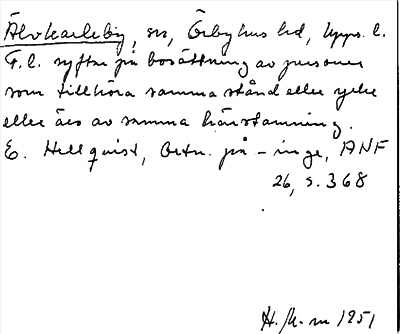 Älvkarleby, sn, Örbyhus hd, Upps. l.
F.l. syftar på bosättning av personer
som tillhöra samma stånd eller yrke
eller äro av samma härstamning.
E. Hellquist, Ortn. på -inge, ANF
26, s. 368
H. 1951